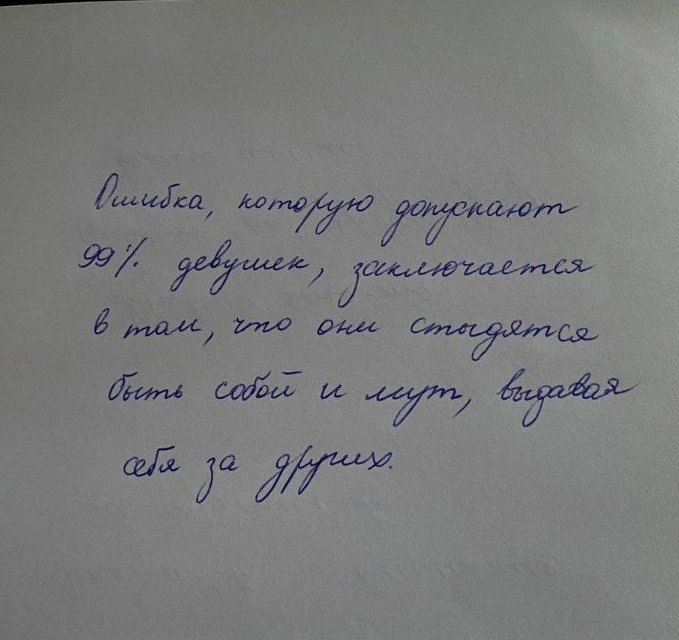 Ошибка, которую допускают
99% девушек, заключается
в том, что они стыдятся
быть собой и лгут, выдавая
себя за других.